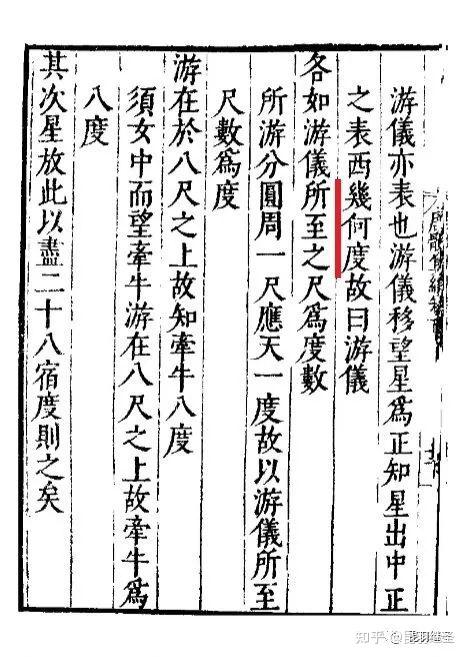 游儀亦表也游儀移望星爲正知星出中正
之表西幾何度故曰游儀
各如游儀所至之尺爲度數
所游分圓周一尺應天一度故以游儀所至
尺數爲度
游在於八尺之上故知牽牛八度
須女中而望牽牛游在八尺之上故牽牛爲
八度
其次星放此以盡二十八宿度則之矣
知乎 @昆羽继圣